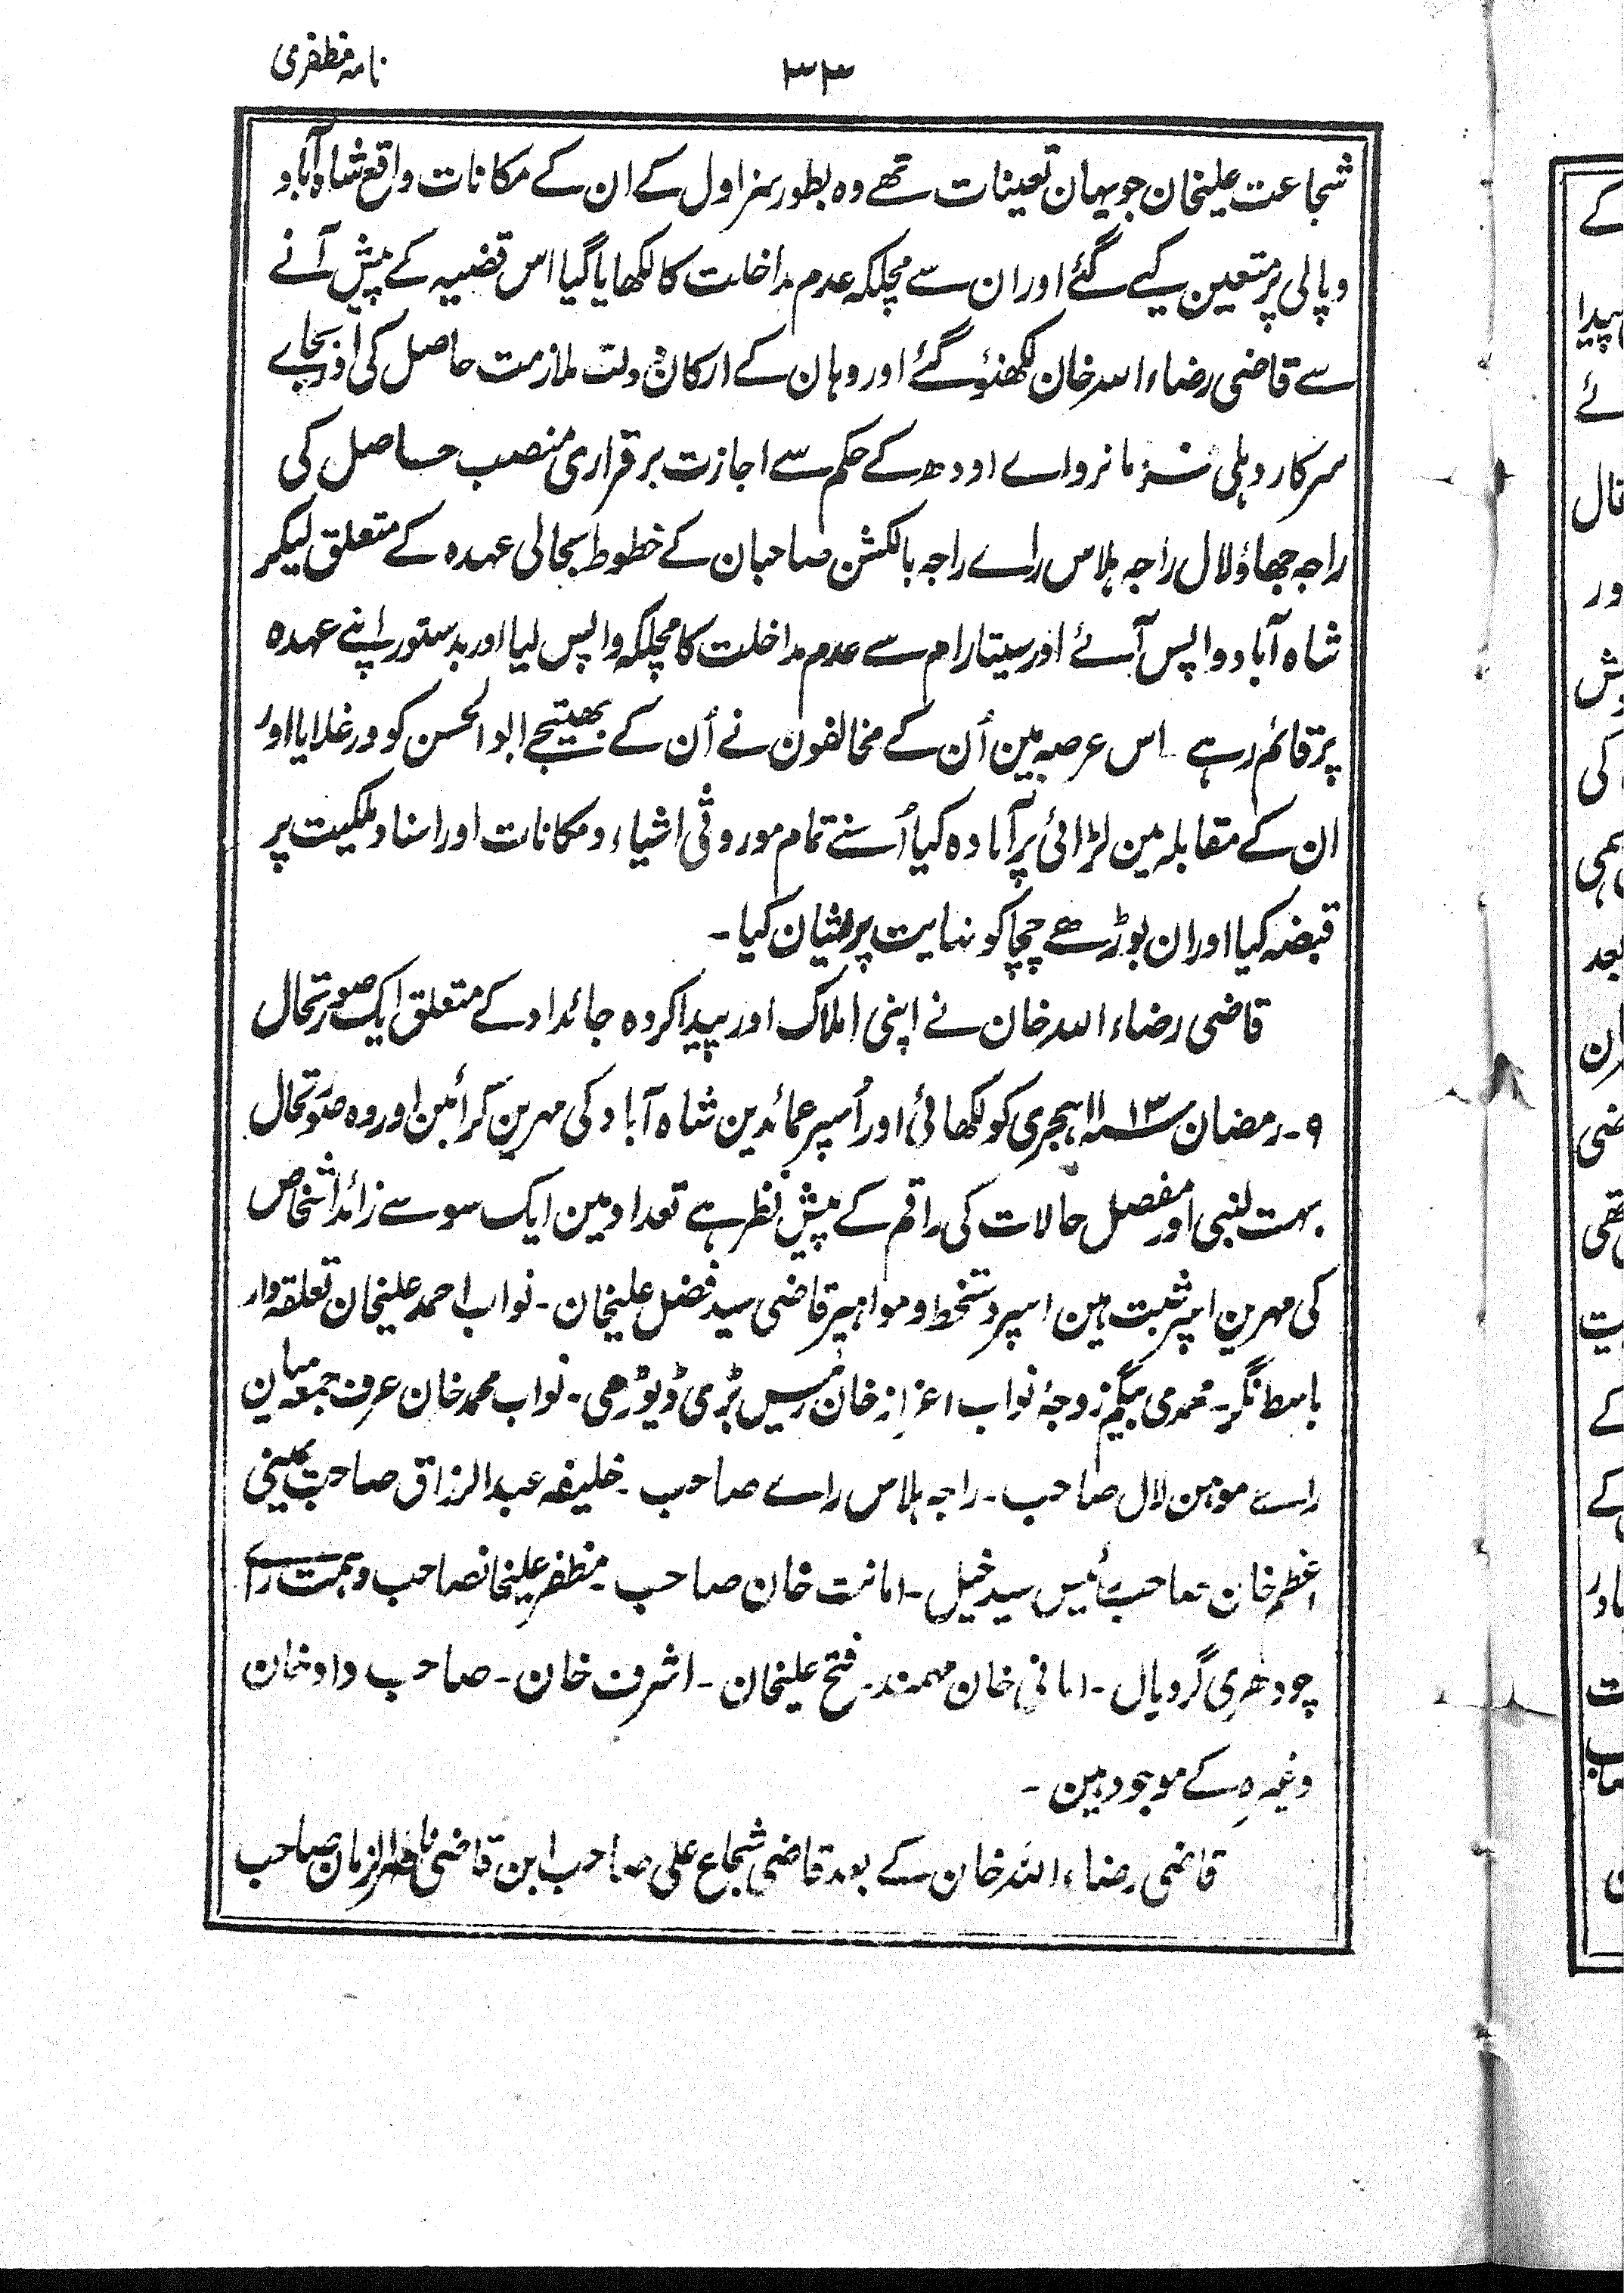 نامہ مظفری
۳۳
شجاعت علیخان جو یہان تعینات تھے وہ بطور سزاول کے ان کے مکانات واقع شاہ آباد
و پالی پر متعین کیے گئے اور ان سے مچلکہ عدم مداخلت کا لکھایا گیا اس قضیہ کے پیش آنے
سے قاضی رضاء اللہ خان لکھنؤ گئے اور وہان کے ارکان دولت ملازمت حاصل کی اور بجاے
سرکار دہلی فرمانرواے اودھ کے حکم سے اجازت برقراری منصب حاصل کی
راجہ جھاؤلال راجہ ہلاس راے راجہ بالکشن صاحبان کے خطوط بحالی عہدہ کے متعلق لیکر
شاہ آباد واپس آئے اور سیتارام سے عدم مداخلت کا مچلکہ واپس لیا اور بدستور اپنے عہدہ
پر قائم رہے ۔ اس عرصہ مین اُن کے مخالفون نے اُن کے بھتیجے ابوالحسن کو ورغلایا اور
ان کے مقابلہ مین لڑائی پر آمادہ کیا اُسنے تمام موروثی اشیاء و مکانات اور اسناد ملکیت پر
قبضہ کیا اور ان بوڑھے چچا کو نہایت پریشان کیا ۔
قاضی رضاء اللہ خان نے اپنی املاک اور پیدا کردہ جائداد کے متعلق ایک صورتحال
۹۔ رمضان ۱۲۱۳ ہجری کو لکھائی اور اُسپر عمائدین شاہ آباد کی مہرین کرائین اور وہ صورتحال
بہت لنبی اور مفصل حالات کی راقم کے پیش نظر ہے تعداد مین ایک سو سے زائد اشخاص
کی مہرین اسپر ثبت ہین اسپر دستخط و مواہیر قاضی سید فضل علیخان ۔ نواب احمد علیخان تعلقہ دار
باسط نگر ۔ محمدی بیگم زوجۂ نواب اعزاز خان رئیس بڑی ڈیوڑھی ۔ نواب محمد خان عرف جمعہ میان
راے موہن لال صاحب ۔ راجہ ہلاس راے صاحب ۔ خلیفہ عبدالرزاق صاحب
اعظم خان صاحب رئیس سید خیل ۔ امانت خان صاحب ۔ مظفر علیخانصاحب و ہمت راے
چودھری گردیال ۔ امانی خان مہمند ۔ فتح علیخان ۔ اشرف خان ۔ صاحب داد خان
وغیرہ کے موجود ہین ۔
قاضی رضاء اللہ خان کے بعد قاضی شجاع علی صاحب ابن قاضی ناظر الزمان صاحب